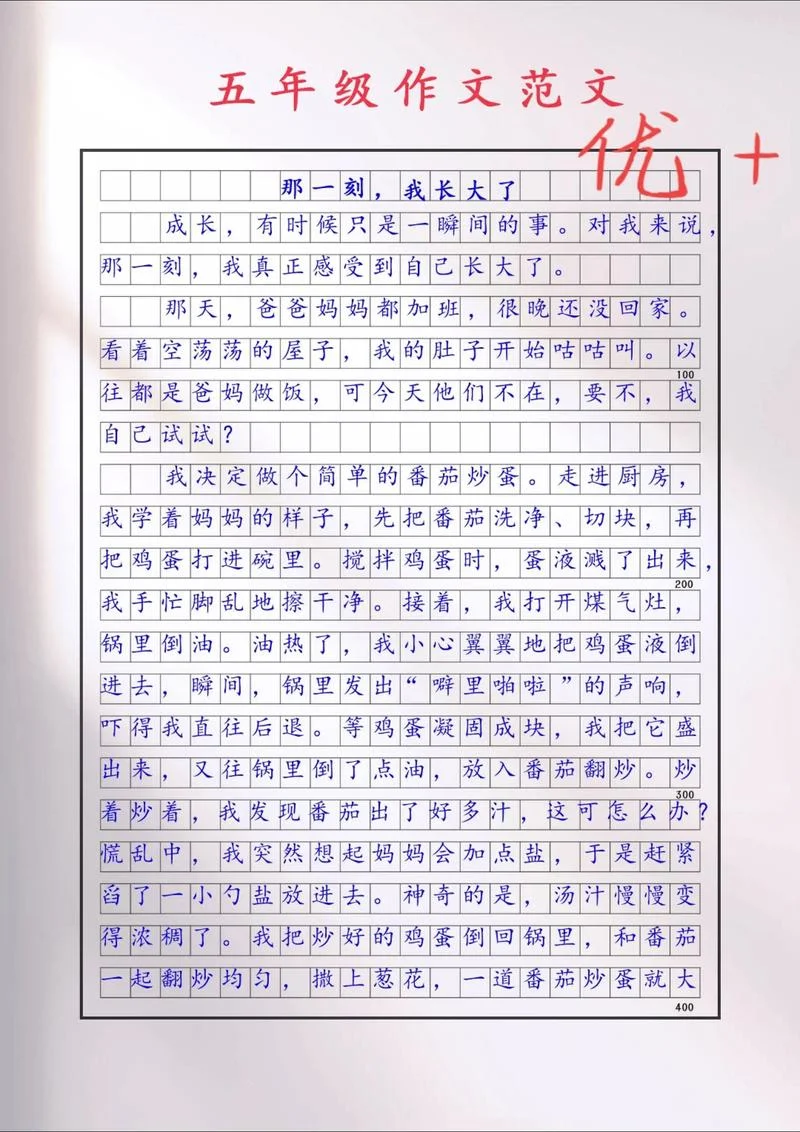 五年级作文范文
优+
那一刻，我长大了
成长，有时候只是一瞬间的事。对我来说，
那一刻，我真正感受到自己长大了。
那天，爸爸妈妈都加班，很晚还没回家。
看着空荡荡的屋子，我的肚子开始咕咕叫。以
100
往都是爸妈做饭，可今天他们不在，要不，我
自己试试？
我决定做个简单的番茄炒蛋。走进厨房，
我学着妈妈的样子，先把番茄洗净、切块，再
把鸡蛋打进碗里。搅拌鸡蛋时，蛋液溅了出来，
200
我手忙脚乱地擦干净。接着，我打开煤气灶，
锅里倒油。油热了，我小心翼翼地把鸡蛋液倒
进去，瞬间，锅里发出“噼里啪啦”的声响，
吓得我直往后退。等鸡蛋凝固成块，我把它盛
出来，又往锅里倒了点油，放入番茄翻炒。炒
300
着炒着，我发现番茄出了好多汁，这可怎么办？
慌乱中，我突然想起妈妈会加点盐，于是赶紧
舀了一小勺盐放进去。神奇的是，汤汁慢慢变
得浓稠了。我把炒好的鸡蛋倒回锅里，和番茄
一起翻炒均匀，撒上葱花，一道番茄炒蛋就大
400